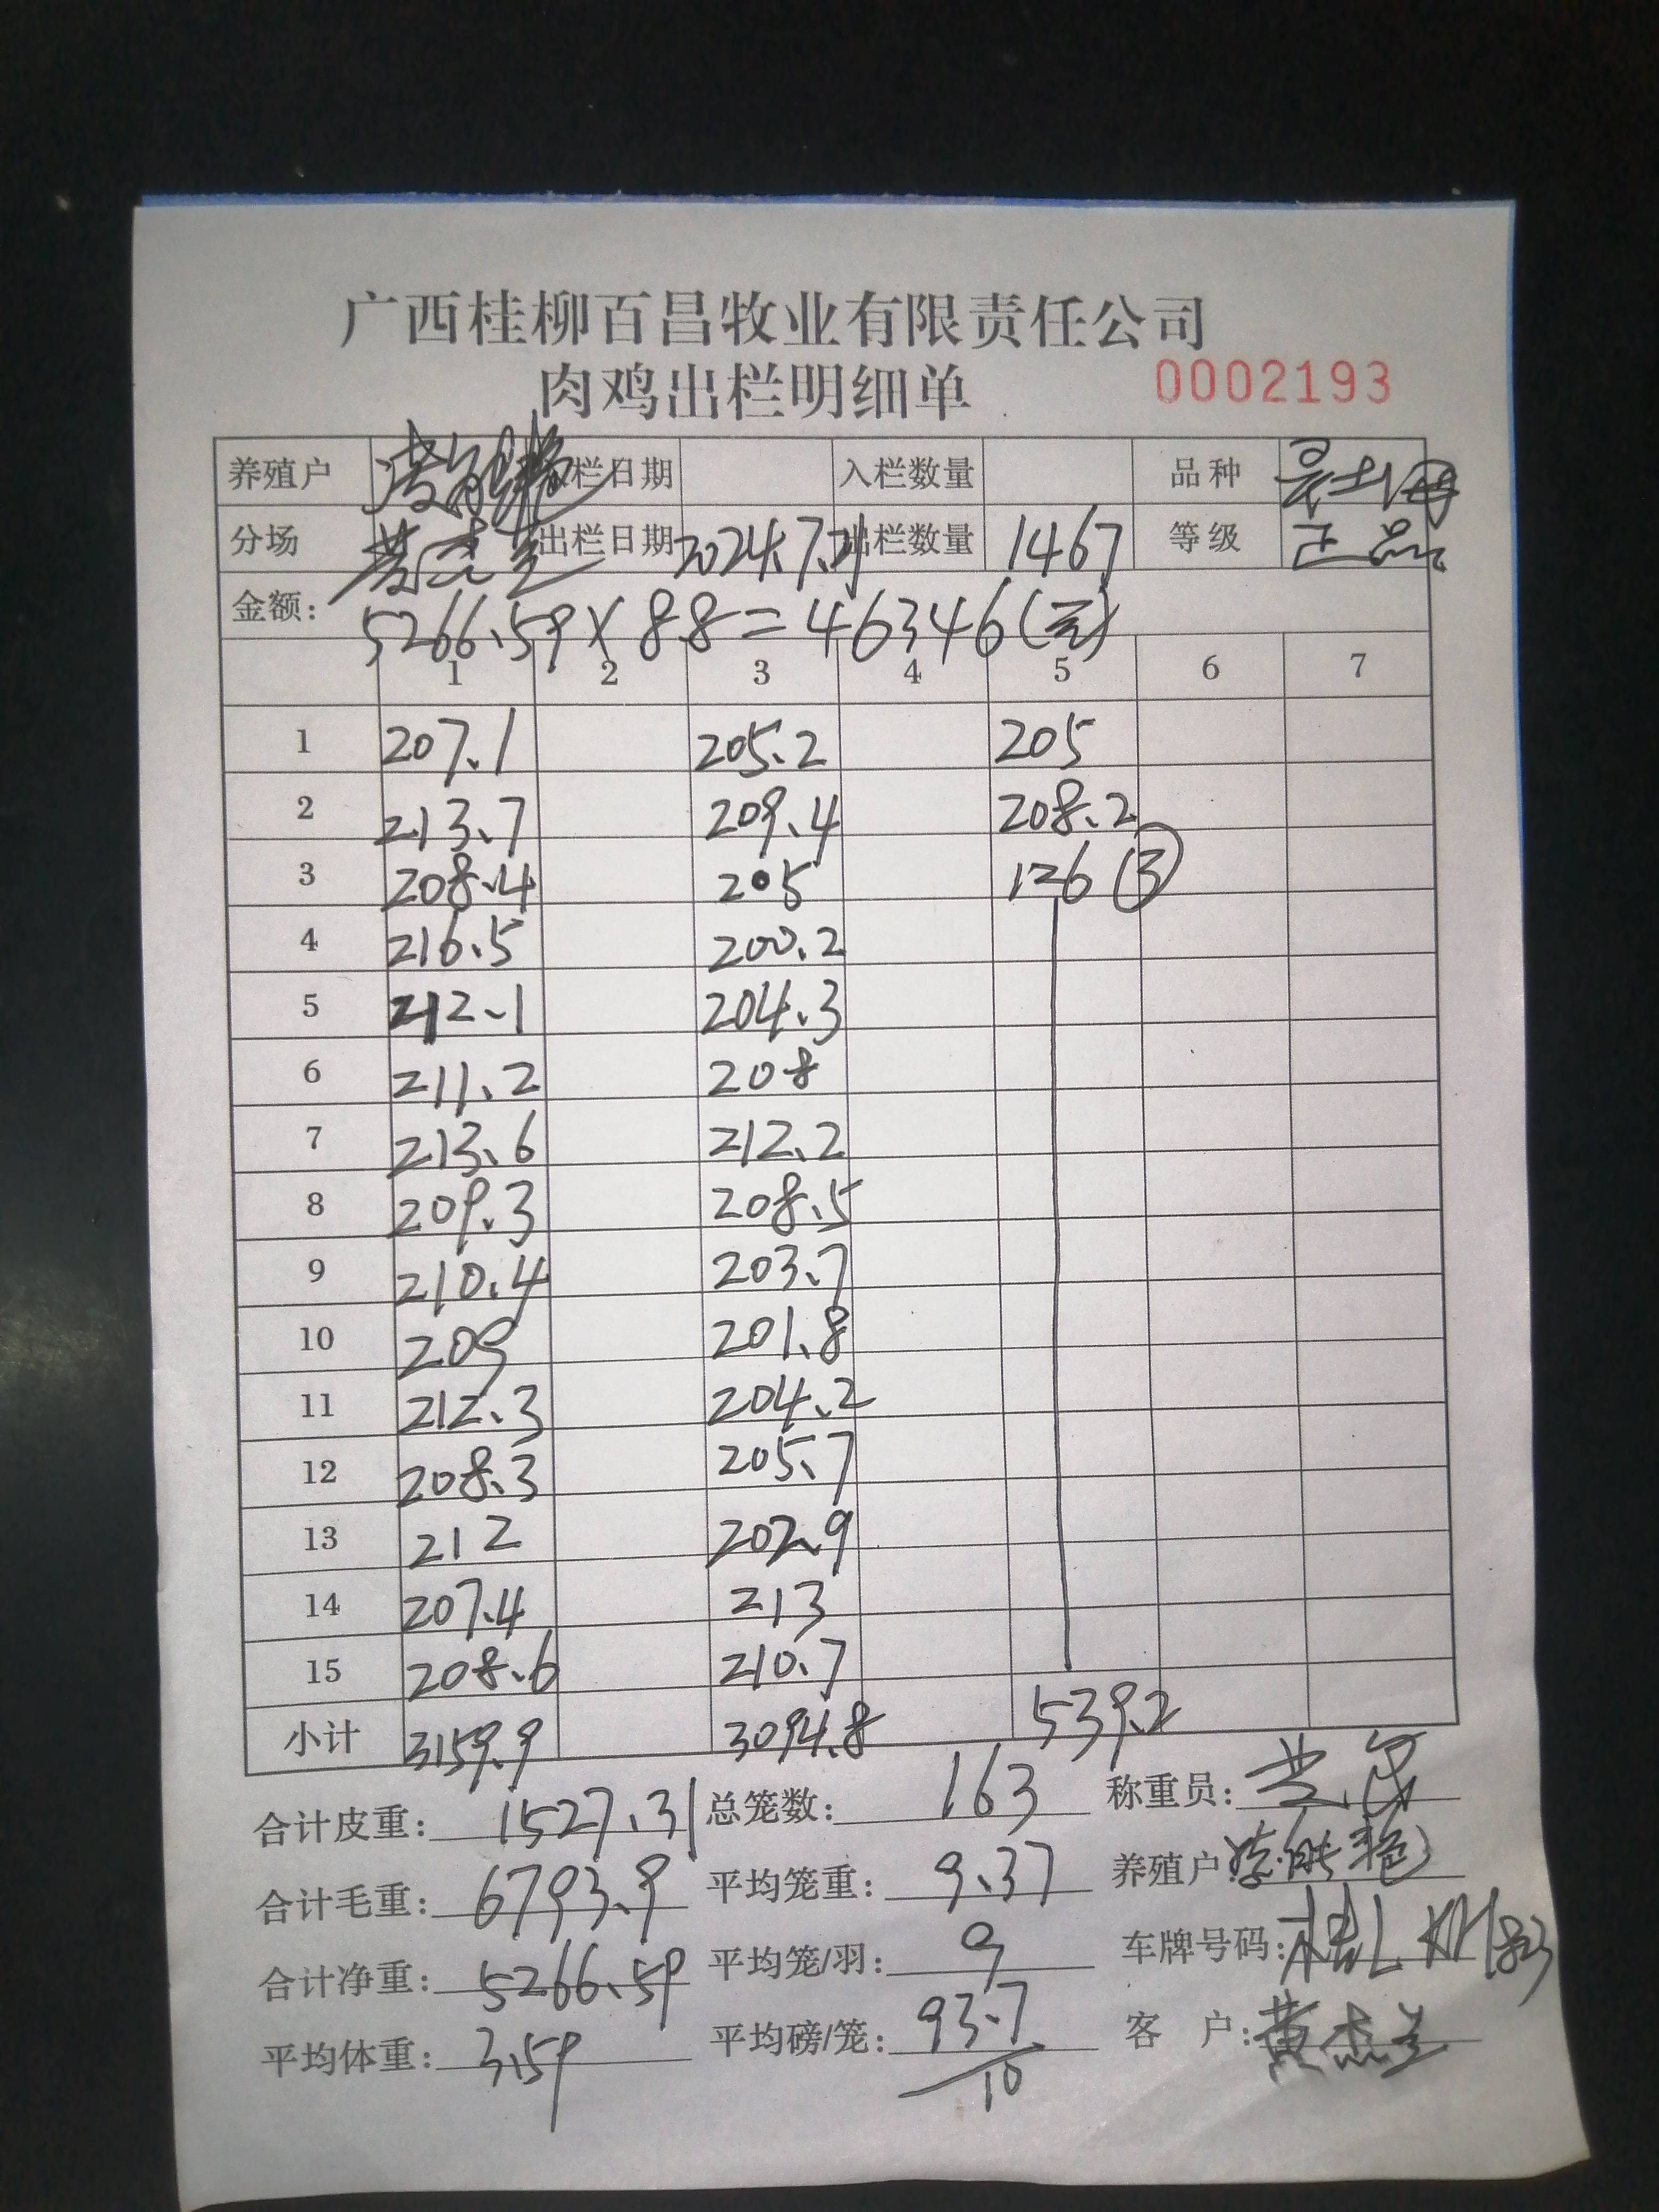 广西桂柳百昌牧业有限责任公司
肉鸡出栏明细单 0002193
养殖户 栏日期 入栏数量 品种
分场 黄杰兰 出栏日期 2024.7.21 出栏数量 1467 等级 正品
金额: 5266.59×8.8=46346(元)
1 2 3 4 5 6 7
1 207.1 205.2 205
2 213.7 209.4 208.2
3 208.4 205 126 ③
4 216.5 200.2
5 212.1 204.3
6 211.2 208
7 213.6 212.2
8 209.3 208.5
9 210.4 203.7
10 209 201.8
11 212.3 204.2
12 208.3 205.7
13 212 202.9
14 207.4 213
15 208.6 210.7
小计 3159.9 3094.8 539.2
合计皮重: 1527.31 总笼数: 163 称重员:
合计毛重: 6793.9 平均笼重: 9.37 养殖户
合计净重: 5266.59 平均笼/羽: 9 车牌号码: 桂L
平均体重: 3.59 平均磅/笼: 93.7/10 客户: 黄杰兰